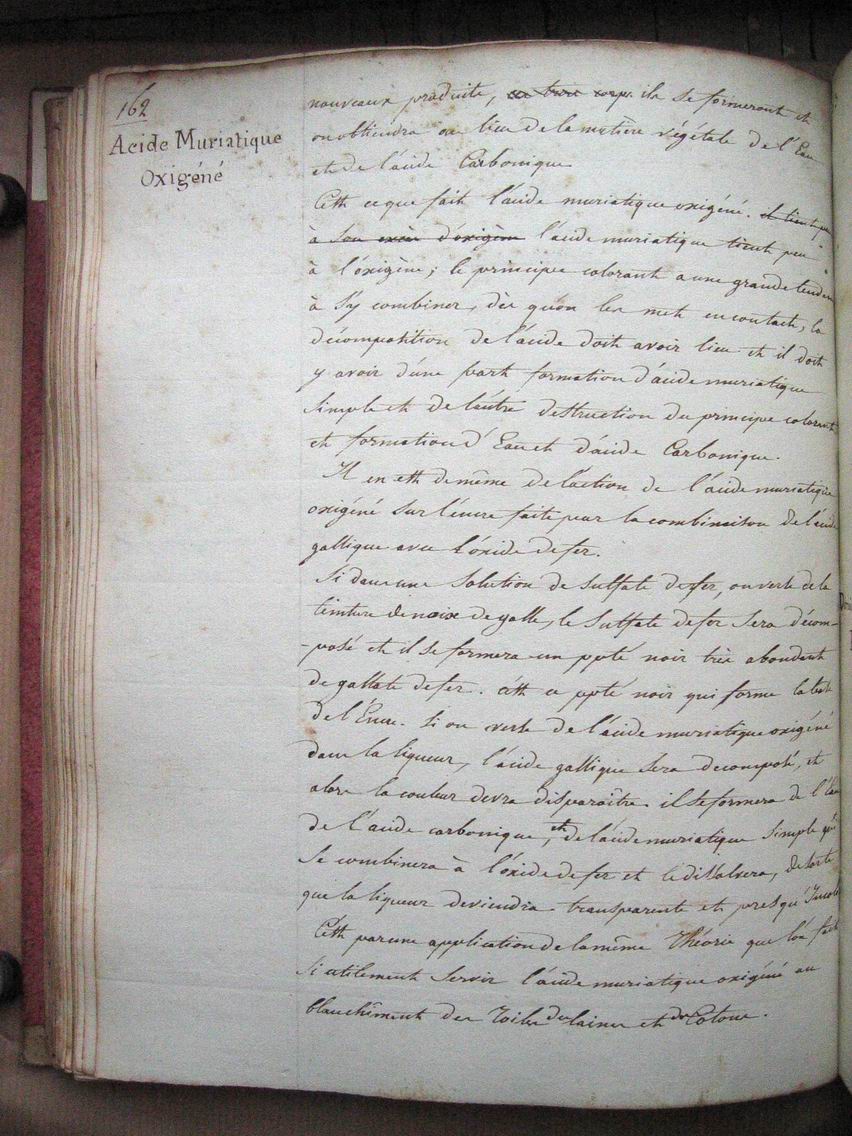 162
Acide Muriatique
Oxigéné
nouveaux produits, ou trois corps ils se formeront et
on obtiendra au lieu de la matière végétale de l'Eau
et de l'acide Carbonique
C'est ce que fait l'acide muriatique oxigéné. il tient peu
à son excès d'oxigène l'acide muriatique tient peu
à l'oxigène; le principe colorant a une grande tendance
à s'y combiner, dès qu'on les met en contact, la
décomposition de l'acide doit avoir lieu et il doit
y avoir d'une part formation d'acide muriatique
simple et de l'autre destruction du principe colorant
et formation d'Eau et d'acide Carbonique.
Il en est de même de l'action de l'acide muriatique
oxigéné sur l'encre faite par la combinaison de l'acide
gallique avec l'oxide de fer.
Si dans une solution de sulfate de fer, on verse de la
teinture de noix de galle, le sulfate de fer sera décom-
-posé et il se formera un ppté noir très abondant
de gallate de fer. c'est ce ppté noir qui forme la base
de l'Encre. Si on verse de l'acide muriatique oxigéné
dans la liqueur, l'acide gallique sera decomposé, et
alors la couleur devra disparaître. il se formera de l'Eau
de l'acide carbonique, et de l'acide muriatique simple qui
se combinera à l'oxide de fer et le dissolvera, de sorte
que la liqueur deviendra transparente et presqu'
C'est par une application de la même théorie que l'on fait
si utilement servir l'acide muriatique oxigéné au
blanchîment des toiles des laines et du Coton.